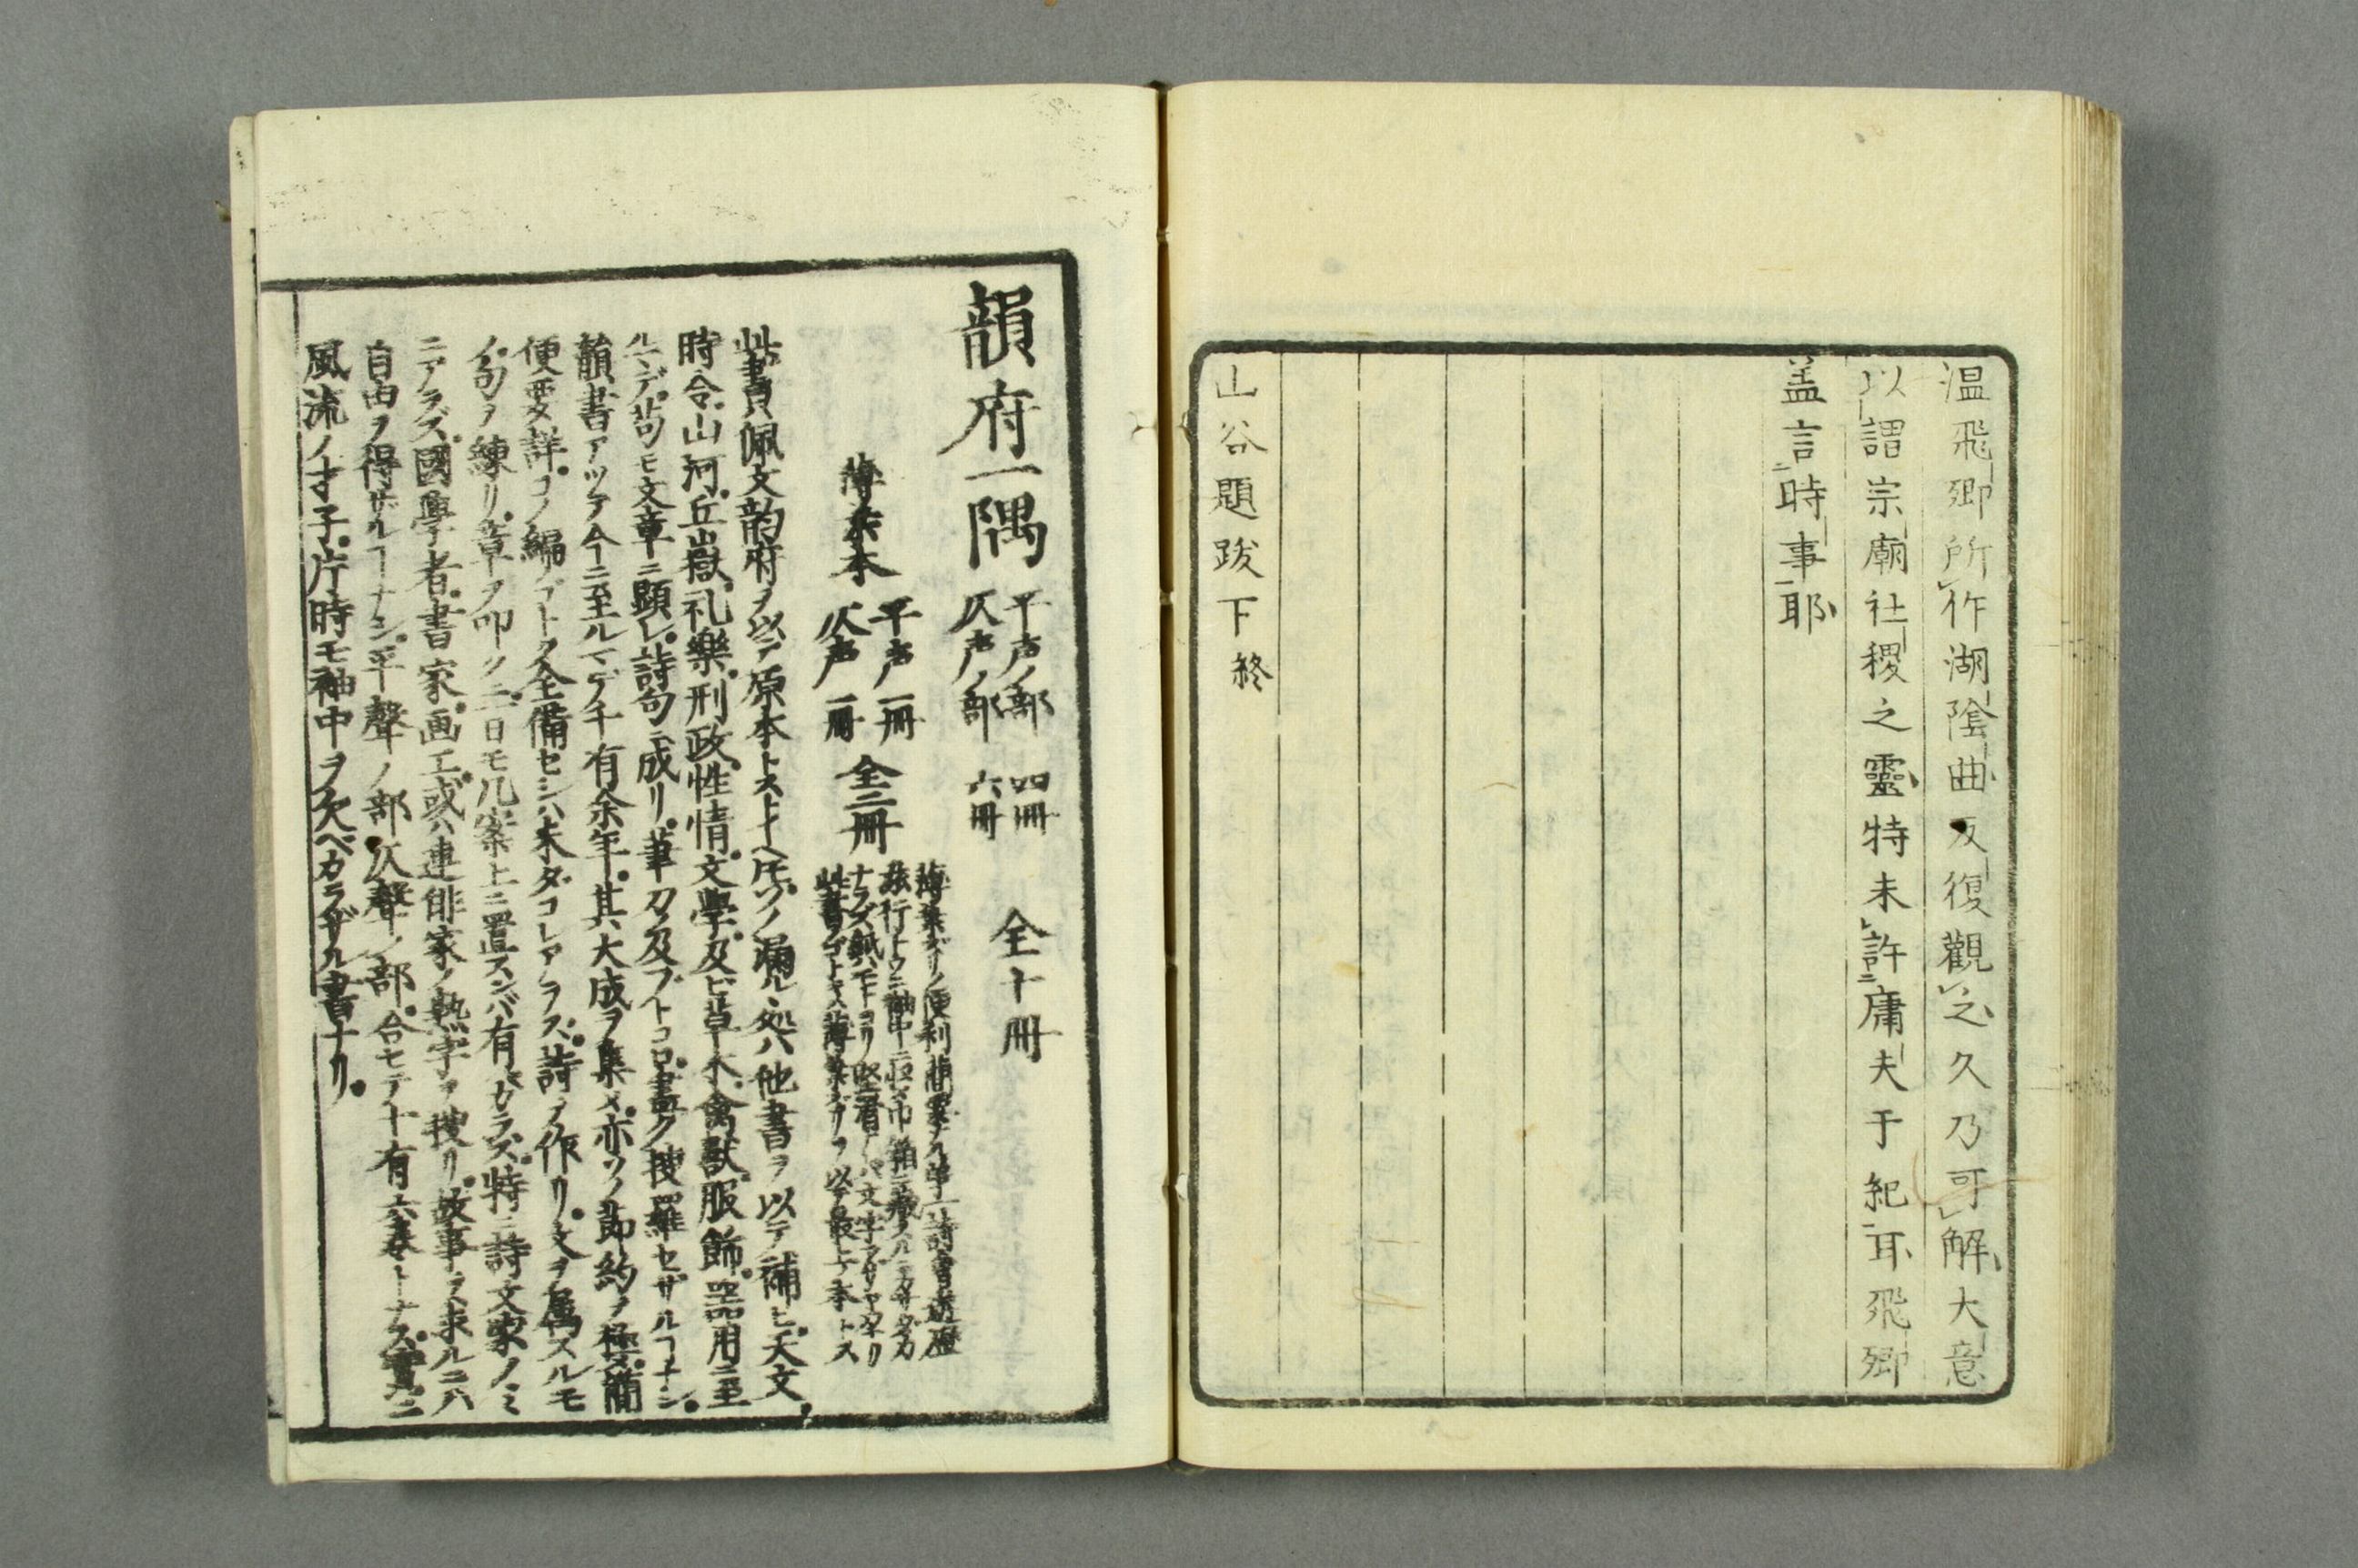 温飛卿所作湖陰曲反復觀之久乃可解大意
以謂宗廟社稷之靈特未許庸夫干紀耳飛卿
盖言時事耶
山谷題跋下終
韻府一隅 平声ノ部 四冊 仄声ノ部 六冊 全十冊
薄葉本 平声一冊 仄声一冊 全二冊
薄葉ズリノ便利簡要ナル第一詩會遊歴
旅行トウニ袖中ニ
ナラズ
此書コトニ薄葉ズリヲ以テ最上本トス
此書佩文韵府ヲ以テ原本トストイヘ𪜈ソノ漏ルヽ処ハ他書ヲ以テ補ヒ天文
時令山河丘嶽礼樂刑政性情文學及ビ草木禽獣服飾器用ニ至
ルマデ苟モ文章ニ顕レ詩句ニ成リ筆刀ノ及ブトコロ盡ク捜羅セザルヿナシ
韻書アツテ今ニ至ルマデ千有余年其大成ヲ集メ亦ソノ節約ヲ極メ簡
便要詳コノ編ノゴトク全備セシハ未ダコレアラズ詩ヲ作リ文ヲ属スルモ
ノ句ヲ練リ章ヲ叩ク一日モ几案上ニ置ズンバ有ベカラズ特ニ詩文家ノミ
ニアラズ國學者書家画工或ハ連俳家ノ熟字ヲ捜リ故事ヲ求ルニハ
自由ヲ得ザルヿナシ平聲ノ部仄聲ノ部合セテ十有六巻トナス實ニ
風流ノ才子片時モ袖中ヲ欠ベカラザル書ナリ